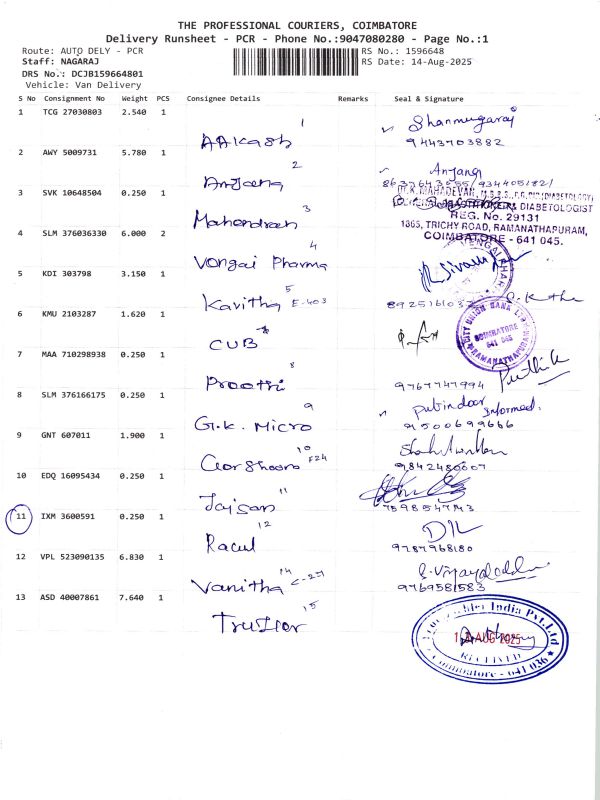 THE PROFESSIONAL COURIERS, COIMBATORE
Delivery Runsheet - PCR - Phone No.:9047080280 - Page No.:1
Route: AUTO DELY - PCR RS No.: 1596648
Staff: NAGARAJ RS Date: 14-Aug-2025
DRS No.: DCJB159664801
Vehicle: Van Delivery
S No Consignment No Weight PCS Consignee Details Remarks Seal & Signature
1 TCG 27030803 2.540 1
1 Shanmugaraj
Aakash 9443703882
2 AWY 5009731 5.780 1
2 Anjana
Anjana 8637643555/934405182/
3 SVK 10648504 0.250 1
Dr. K. MAHADEVAN, M.B.B.S.,
& DIABETOLOGIST
3 REG. No. 29131
Mahendran 1865, TRICHY ROAD, RAMANATHAPURAM,
4 SLM 376036330 6.000 2
COIMBATORE - 641 045.
4
Vongai Pharma
5 KDI 303798 3.150 1
5
Kavitha E-403
6 KMU 2103287 1.620 1
CUB
CITY UNION BANK LTD
COIMBATORE
641 045
RAMANATHAPURAM
7 MAA 710298938 0.250 1
8
Preethi 9767747994
8 SLM 376166175 0.250 1
9
G.K. Micro informed.
9500699666
9 GNT 607011 1.900 1
10
F24 9842480607
10 EDQ 16095434 0.250 1
11
Jaison 7598547743
11 IXM 3600591 0.250 1
12
Racul 9787968180
12 VPL 523090135 6.830 1
14
Vanitha C-27 9769581583
13 ASD 40007861 7.640 1
15
India Pvt. Ltd
AUG 2025
RECEIVED
Coimbatore - 641 036